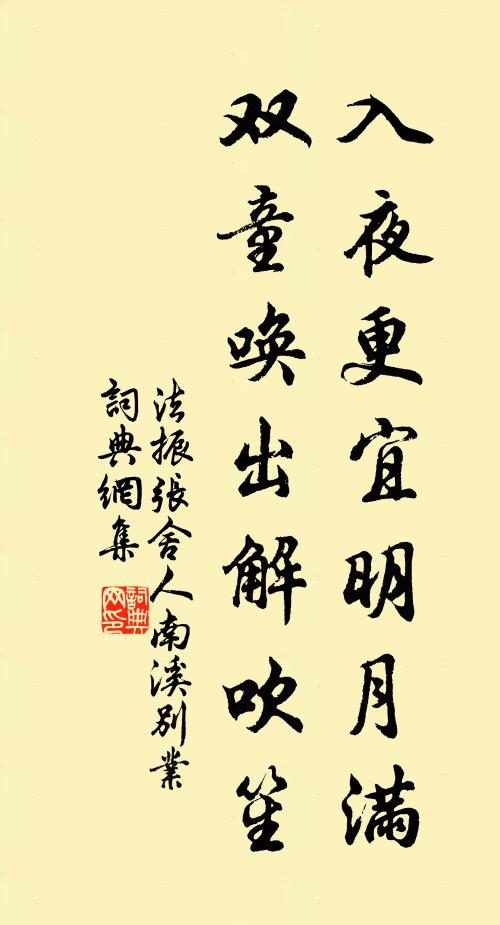 入夜更宜明月满
双童唤出解吹笙
法振張舍人南溪别業
詞典網集
詞典网印